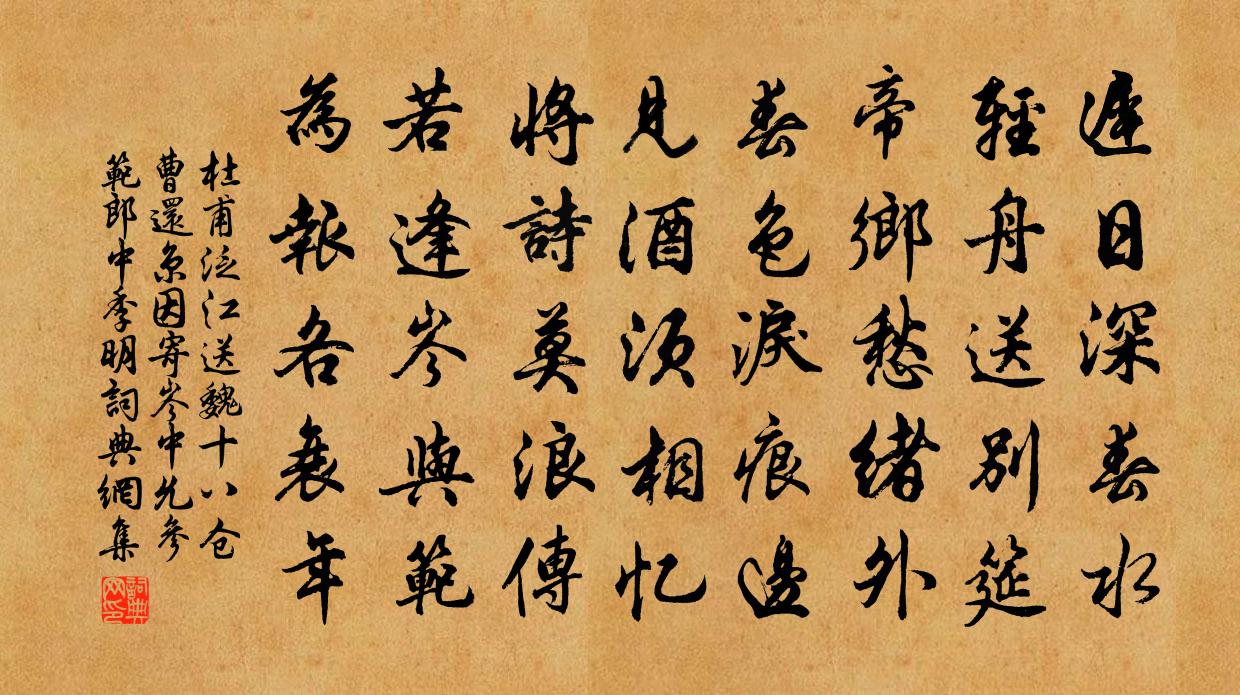 遲日深春水
輕舟送別筵
帝鄉愁緒外
春色淚痕邊
見酒須相忆
將詩莫浪傳
若逢岑與範
為報各衰年
杜甫泛江送魏十八仓
曹還京因寄岑中允參
範郎中季明詞典網集
詞典网印